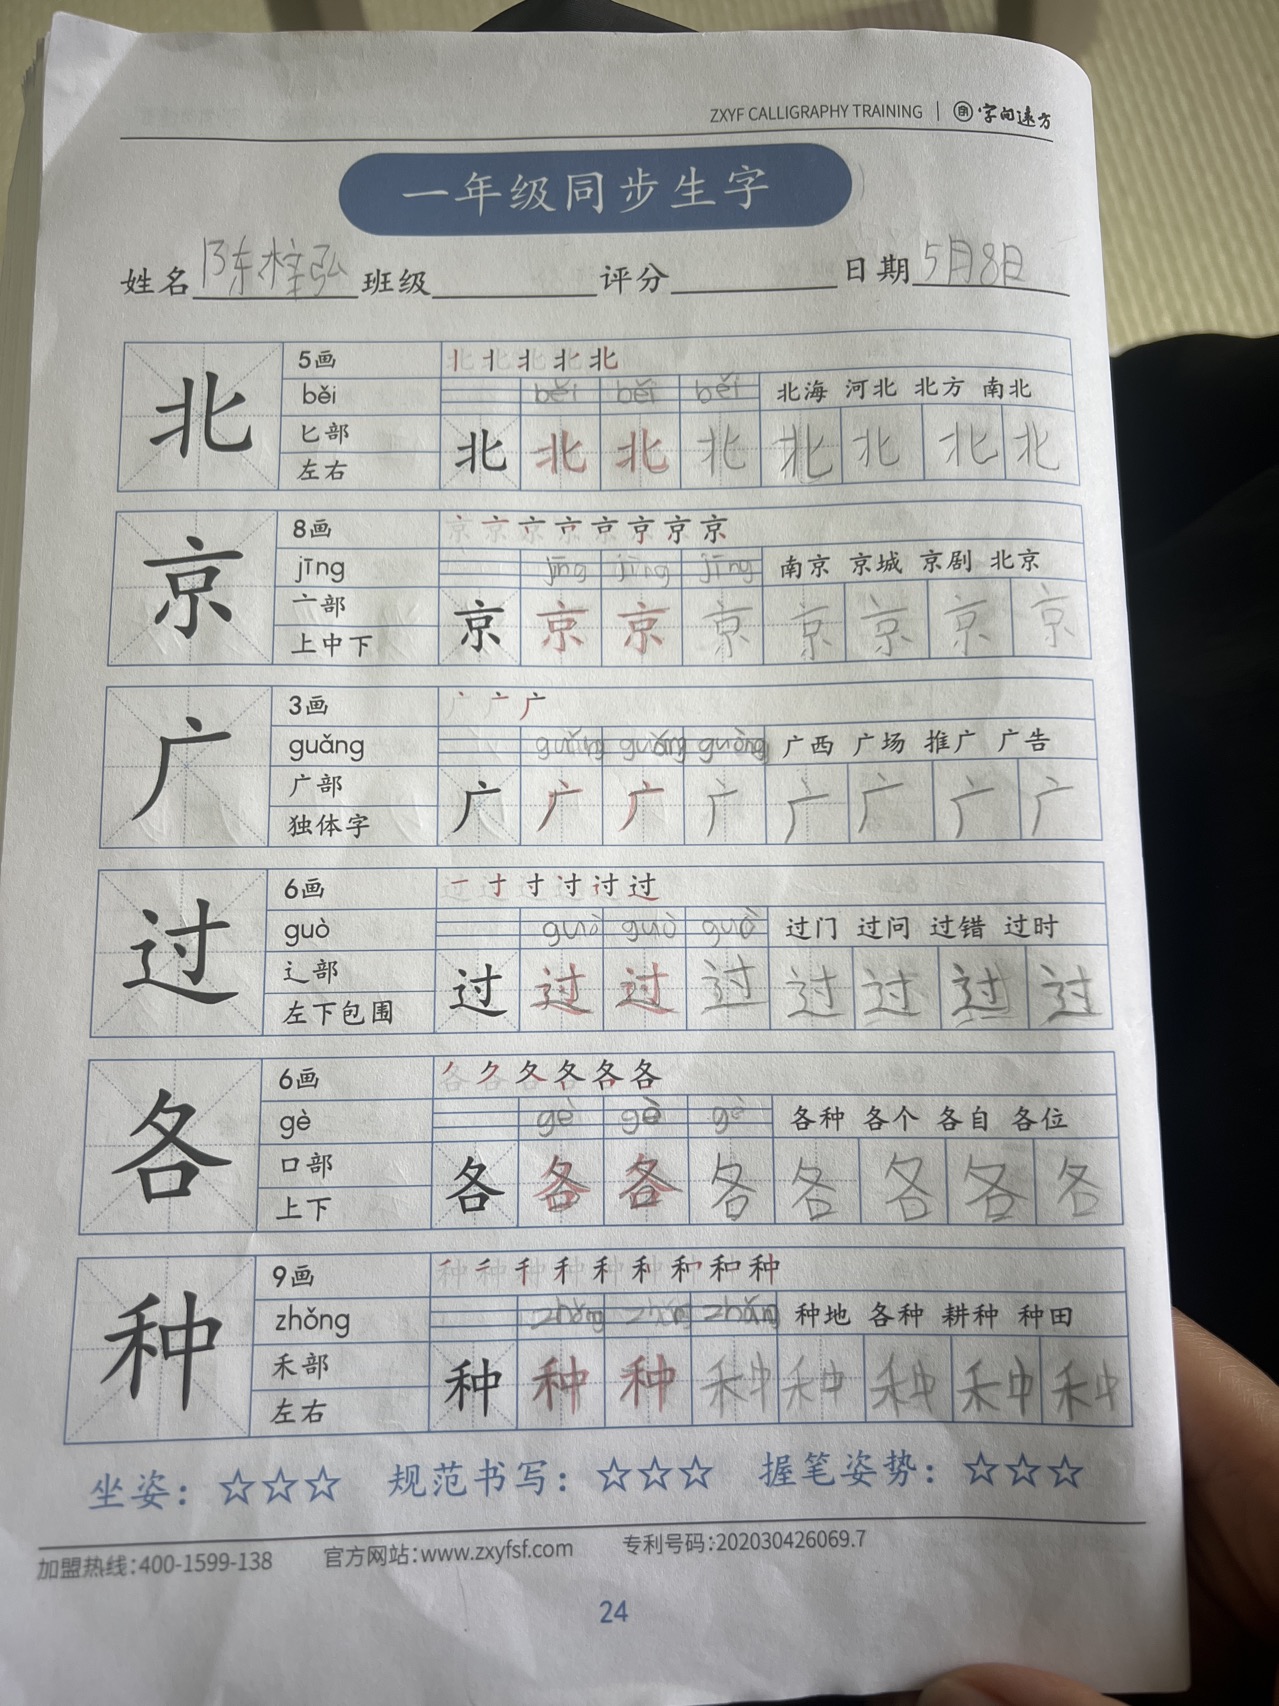 ZXYF CALLIGRAPHY TRAINING | 字间远方
一年级同步生字
姓名 陈梓弘 班级 评分 日期 5月8日
北
5画 北 北 北 北 北
běi běi běi běi 北海 河北 北方 南北
匕部
左右
北 北 北 北 北 北 北 北
京
8画 京 京 京 京 京 京 京 京
jīng jīng jīng jīng 南京 京城 京剧 北京
亠部
上中下
京 京 京 京 京 京 京 京
广
3画 广
guǎng guǎng guǎng guǎng 广西 广场 推广 广告
广部
独体字
广 广 广 广 广 广 广 广
过
6画 过 过
guò guò guò guò 过门 过问 过错 过时
辶部
左下包围
过 过 过 过 过 过 过 过
各
6画 各 各 各 各 各 各
gè gè gè gè 各种 各个 各自 各位
口部
上下
各 各 各 各 各 各 各 各
种
9画 种 种 种 种 种 种 种 种 种
zhǒng zhǒng zhǒng zhǒng 种地 各种 耕种 种田
禾部
左右
种 种 种 种 种 种 种 种
坐姿：☆☆☆ 规范书写：☆☆☆ 握笔姿势：☆☆☆
加盟热线：400-1599-138 官方网站：www.zxyfsf.com 专利号码：202030426069.7
24